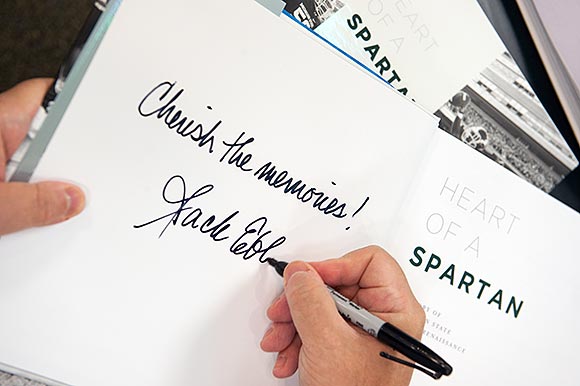 Cherish the memories!
Jack Ebl
HEART
OF A
SPARTAN
HEART
OF A
SPARTAN
OF
STATE
RENAISSANCE